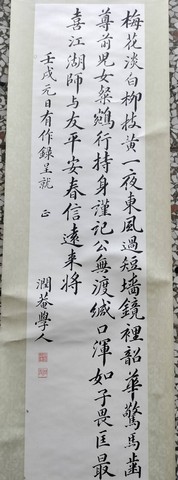 梅花淡白柳枝黃一夜東風過短墻鏡裡韶華驚馬齒
尊前兒女粲鵷行持身謹記公無渡緘口渾如子畏匡最
喜江湖師与友平安春信遠来將
壬戌元日有作錄呈就 正
潤菴學人